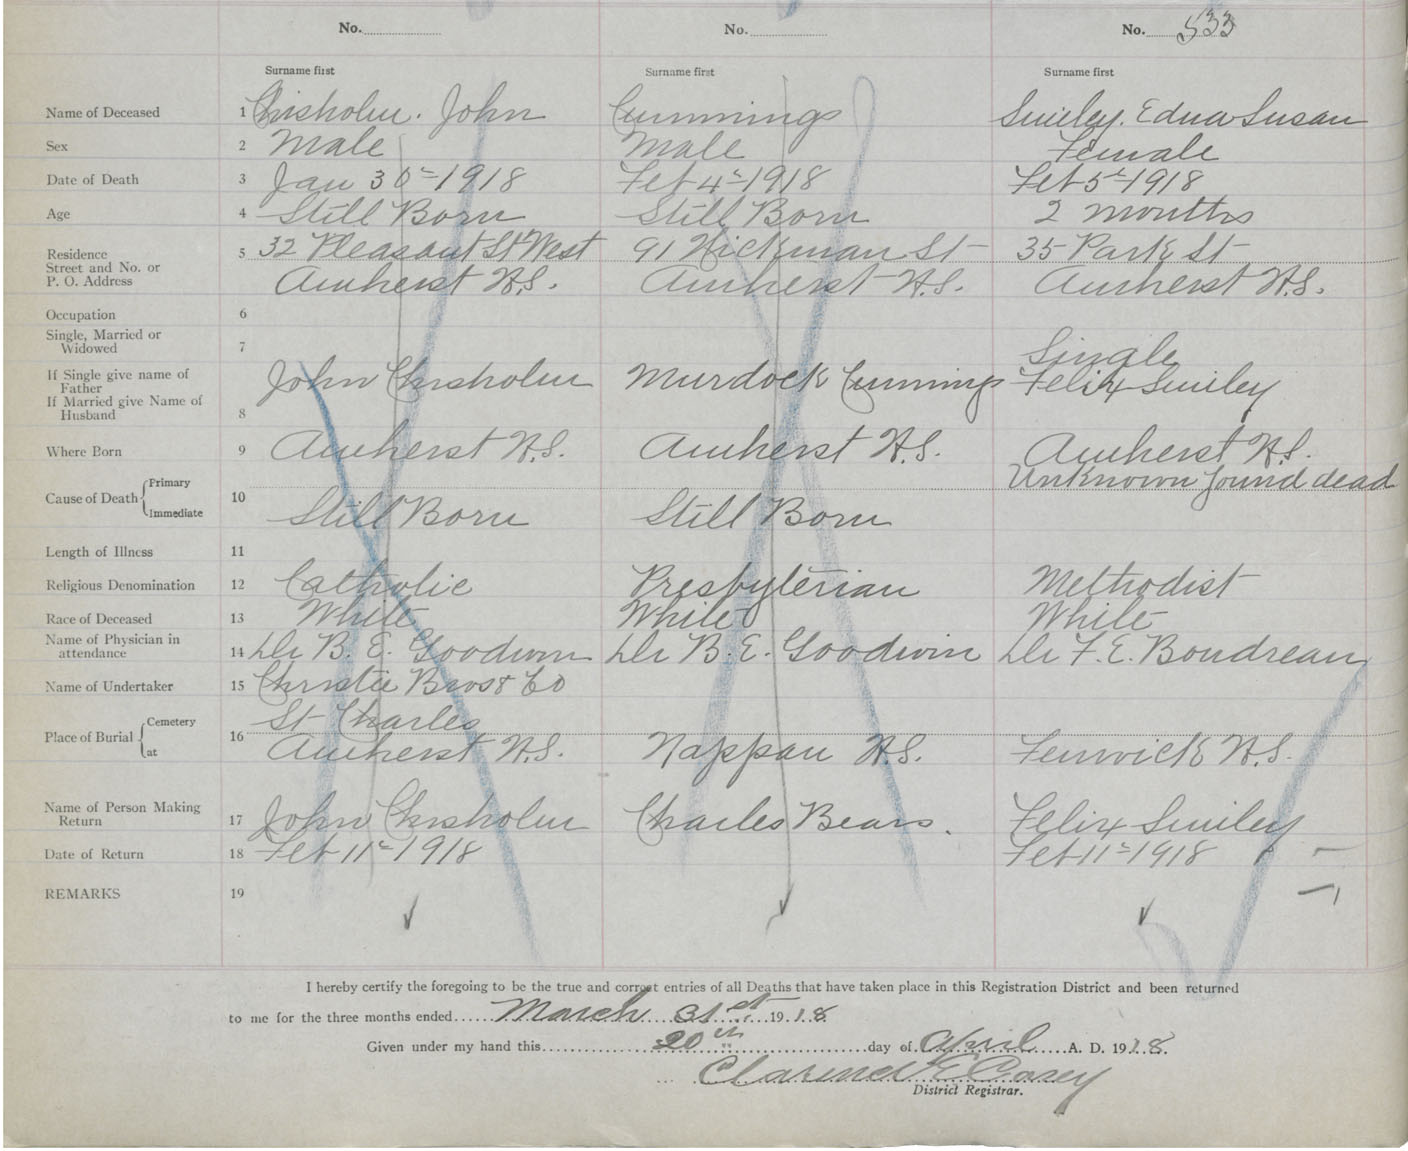 No. No. No. 533
Surname first Surname first Surname first
Name of Deceased 1 Chisholm. John Cummings Smiley. Edna Susan
Sex 2 Male Male Female
Date of Death 3 Jan 30th 1918 Feb 4th 1918 Feb 5th 1918
Age 4 Still Born Still Born 2 months
Residence
Street and No. or 5 32 Pleasant St West 91 Hickman St 35 Park St
P. O. Address Amherst N.S. Amherst N.S. Amherst N.S.
Occupation 6
Single, Married or
Widowed 7 Single
If Single give name of
Father John Chisholm Murdock Cummings Felix Smiley
If Married give Name of
Husband 8
Where Born 9 Amherst N.S. Amherst N.S. Amherst N.S.
Primary Unknown found dead
Cause of Death 10
Immediate Still Born Still Born
Length of Illness 11
Religious Denomination 12 Catholic Presbyterian Methodist
Race of Deceased 13 White White White
Name of Physician in
attendance 14 Dr B. E. Goodwin Dr B. E. Goodwin Dr F. E. Boudreau
Name of Undertaker 15 Christie Bros & Co
Cemetery St Charles
Place of Burial 16
at Amherst N.S. Nappan N.S. Fenwick N.S.
Name of Person Making
Return 17 John Chisholm Charles Bears. Felix Smiley
Date of Return 18 Feb 11th 1918 Feb 11th 1918
REMARKS 19
I hereby certify the foregoing to be the true and correct entries of all Deaths that have taken place in this Registration District and been returned
to me for the three months ended March 31st 1918
Given under my hand this 20th day of April A. D. 1918.
Clarence E Casey
District Registrar.